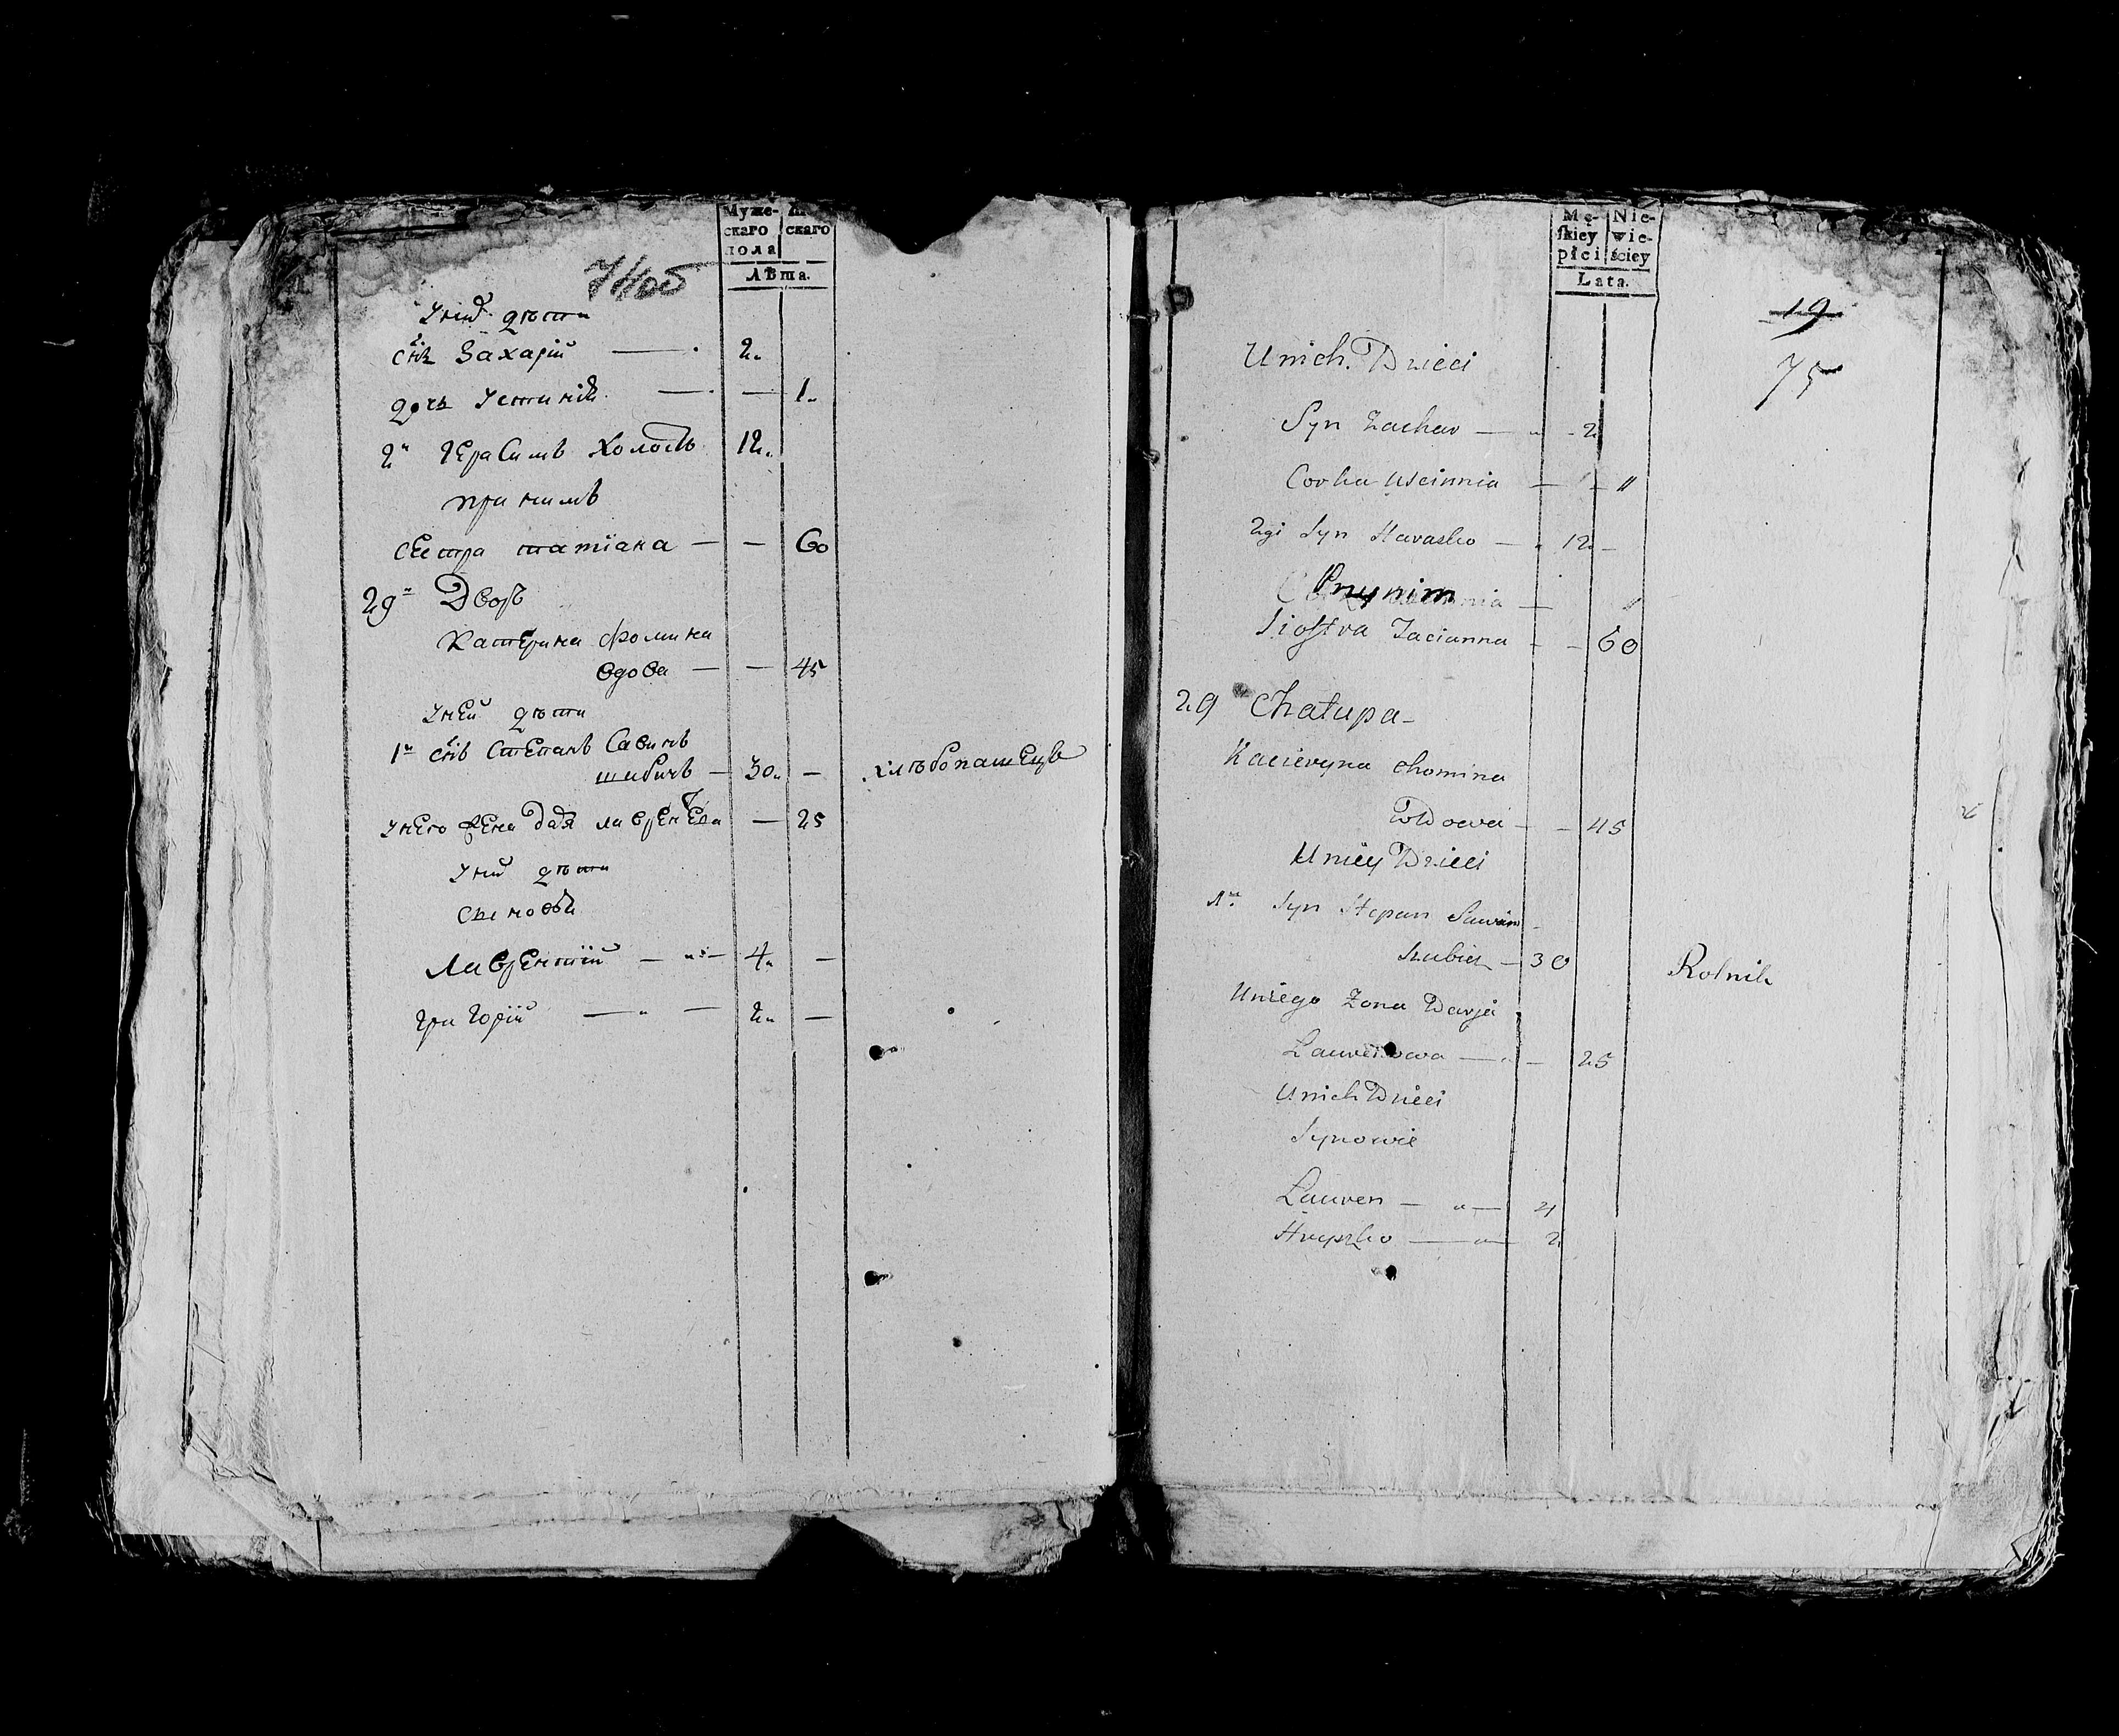 Муже-
скаго
пола
скаго
Лѣта.
74об
Уних дѣти
снъ Захарiй — 2.
дочь Устинiя — — 1.
2й Герасимъ Холостъ 12.
при нимъ
сестра татiана — — 60
29й Дворъ
Катерина Фомина
вдова — — 45
Уней дѣти
1й снъ Степанъ Савинъ
шибичъ — 30. — хлѣбопашецъ
Унего жена даря лавренева — 25
Уних дѣти
сыновѣи
Лаврентiй — 4. —
григорiй — 2. —
Mę-
skiey
płci
Nie-
wie-
ściey
Lata.
19
75
Unich Dzieci
Syn Zachar — 2
Corka Uscinnia — 1 — "
2gi Syn Harasko — 12 —
Przynim
Siostra Tacianna — — 60
29 Chałupa
Kacieryna Chomina
Wdowa — — 45
Uniey Dzieci
1n Syn Stepan Sawin
Szubicz — 30
Rolnik
Uniego Zona Darja
Laurenowa — — 25
Unich Dzieci
Synowie
Lauren — " — 4
Hryszko — " — 2